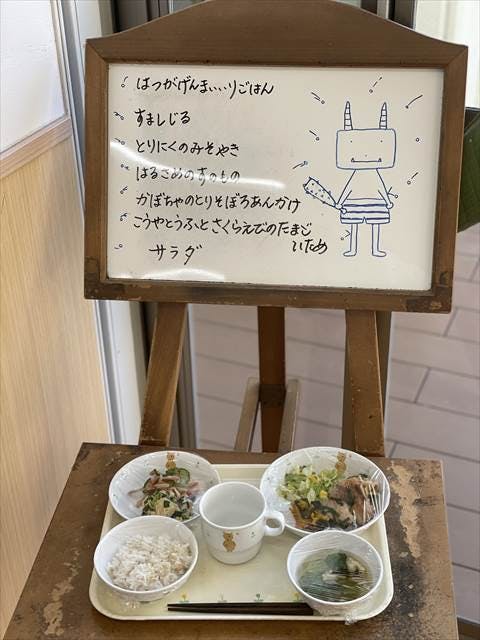 はつがげんまいいりごはん
すましじる
とりにくのみそやき
はるさめのすのもの
かぼちゃのとりそぼろあんかけ
こうやとうふとさくらえびのたまご
いため
サラダ